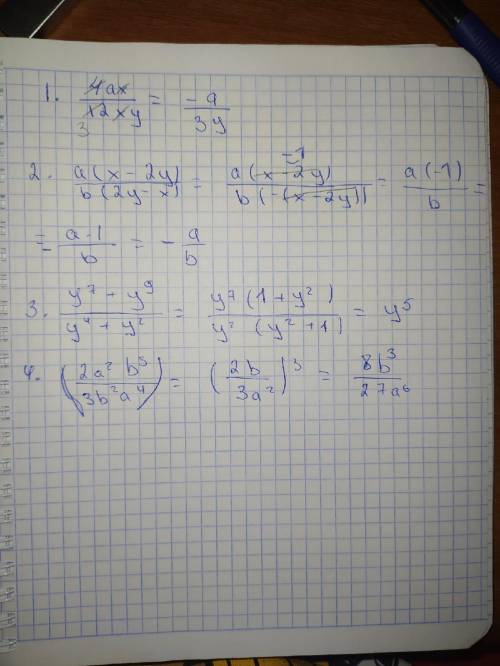 1. 4ax/12xy = -a/3y
3
2. a(x-2y)/b(2y-x) = a(x-2y)/b(-(x-2y)) = a(-1)/b =
-1
= a-1/b = - a/b
3. y⁷ + y⁹/y⁴ + y² = y⁷(1+y²)/y²(y²+1) = y⁵
4. (2a²b³/3b²a⁴) = (2b/3a²)³ = 8b³/27a⁶